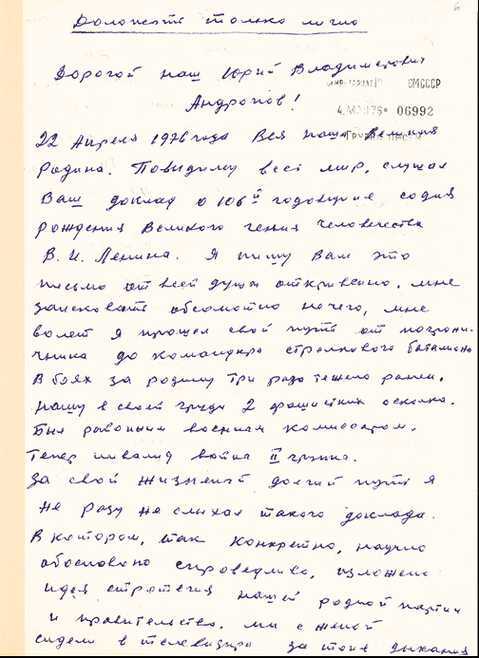 6
Доложить только лично
Дорогой наш Юрий Владимирович
СМ СССР
Андропов!
06992
22 Апреля 1976 года Вся наша Великая
Родина. Повидиму весь мир, слушал
Ваш доклад о 106й годовщине со дня
рождения Великого гения человечества
В. И. Ленина. Я пишу Вам это
письмо от всей души откривено. мне
заискевать абсолютно нечего, мне
волет я прошел свой путь от пограни-
чника до командира стрелкового баталиона
В боях за родину три раза тежело ранен.
Нашу в своей груди 2 фашистких осколка.
Был районным военым комисаром.
Тепер инвалид война II группа.
За свой жизненый долгий путь я
не разу не слыхал такого доклада.
В котором, так конкретно, научно
обосновано справедливо, изложено
идея стратегия нашей родной партии
и правительства. мы с женой
сидели в телевизира за таив дыхания